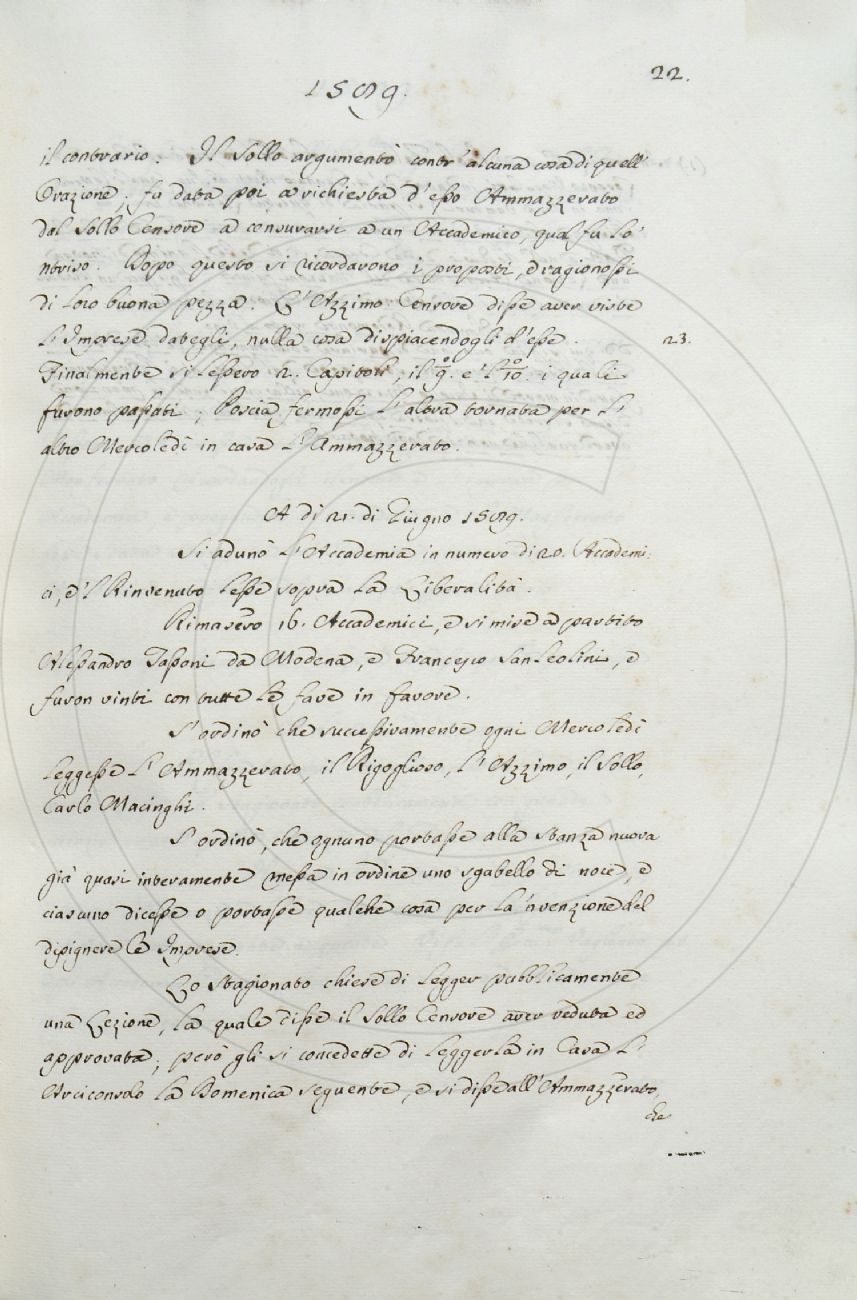 22.
1589.
il contrario. Il Sollo argumentò contr'alcuna cosa di quell'
Orazione; fu data poi a richiesta d'esso Ammazzerato
dal Sollo Censore a censurarsi a un Accademico, qual fu lo'
ntriso. Dopo questo si ricordarono i proposti, e ragionossi
di loro buona pezza. L'Azzimo Censore disse aver viste
l'Imprese dategli, nulla cosa dispiacendogli d'esse.
23.
Finalmente si lessero 2. Capitoli, il 9.º e 'l 10.º i quali
furono passati; Poscia fermossi l'altra tornata per l'
altro Mercoledì in casa l'Ammazzerato.
A dì 21. di Giugno 1589.
Si adunò l'Accademia in numero di 20. Accademi:
ci, e 'l Rinvenuto lesse sopra la Liberalità.
Rimasero 16. Accademici, e si mise a partito
Alessandro Tassoni da Modena, e Francesco Sanleolini, e
furon vinti con tutte le fave in favore.
S'ordinò che successivamente ogni Mercoledì
leggesse l'Ammazzerato, il Rigoglioso, l'Azzimo, il Sollo,
Carlo Macinghi.
S'ordinò, che ognuno portasse alla stanza nuova
già quasi interamente messa in ordine uno sgabello di noce, e
ciascuno dicesse o portasse qualche cosa per la 'nvenzione del
dipignere le Imprese.
Lo Stagionato chiese di legger pubblicamente
una Lezione, la quale disse il Sollo Censore aver veduta ed
approvata; però gli si concedette di leggerla in Casa l'
Arciconsolo la Domenica seguente, e si disse all'Ammazzerato,
che